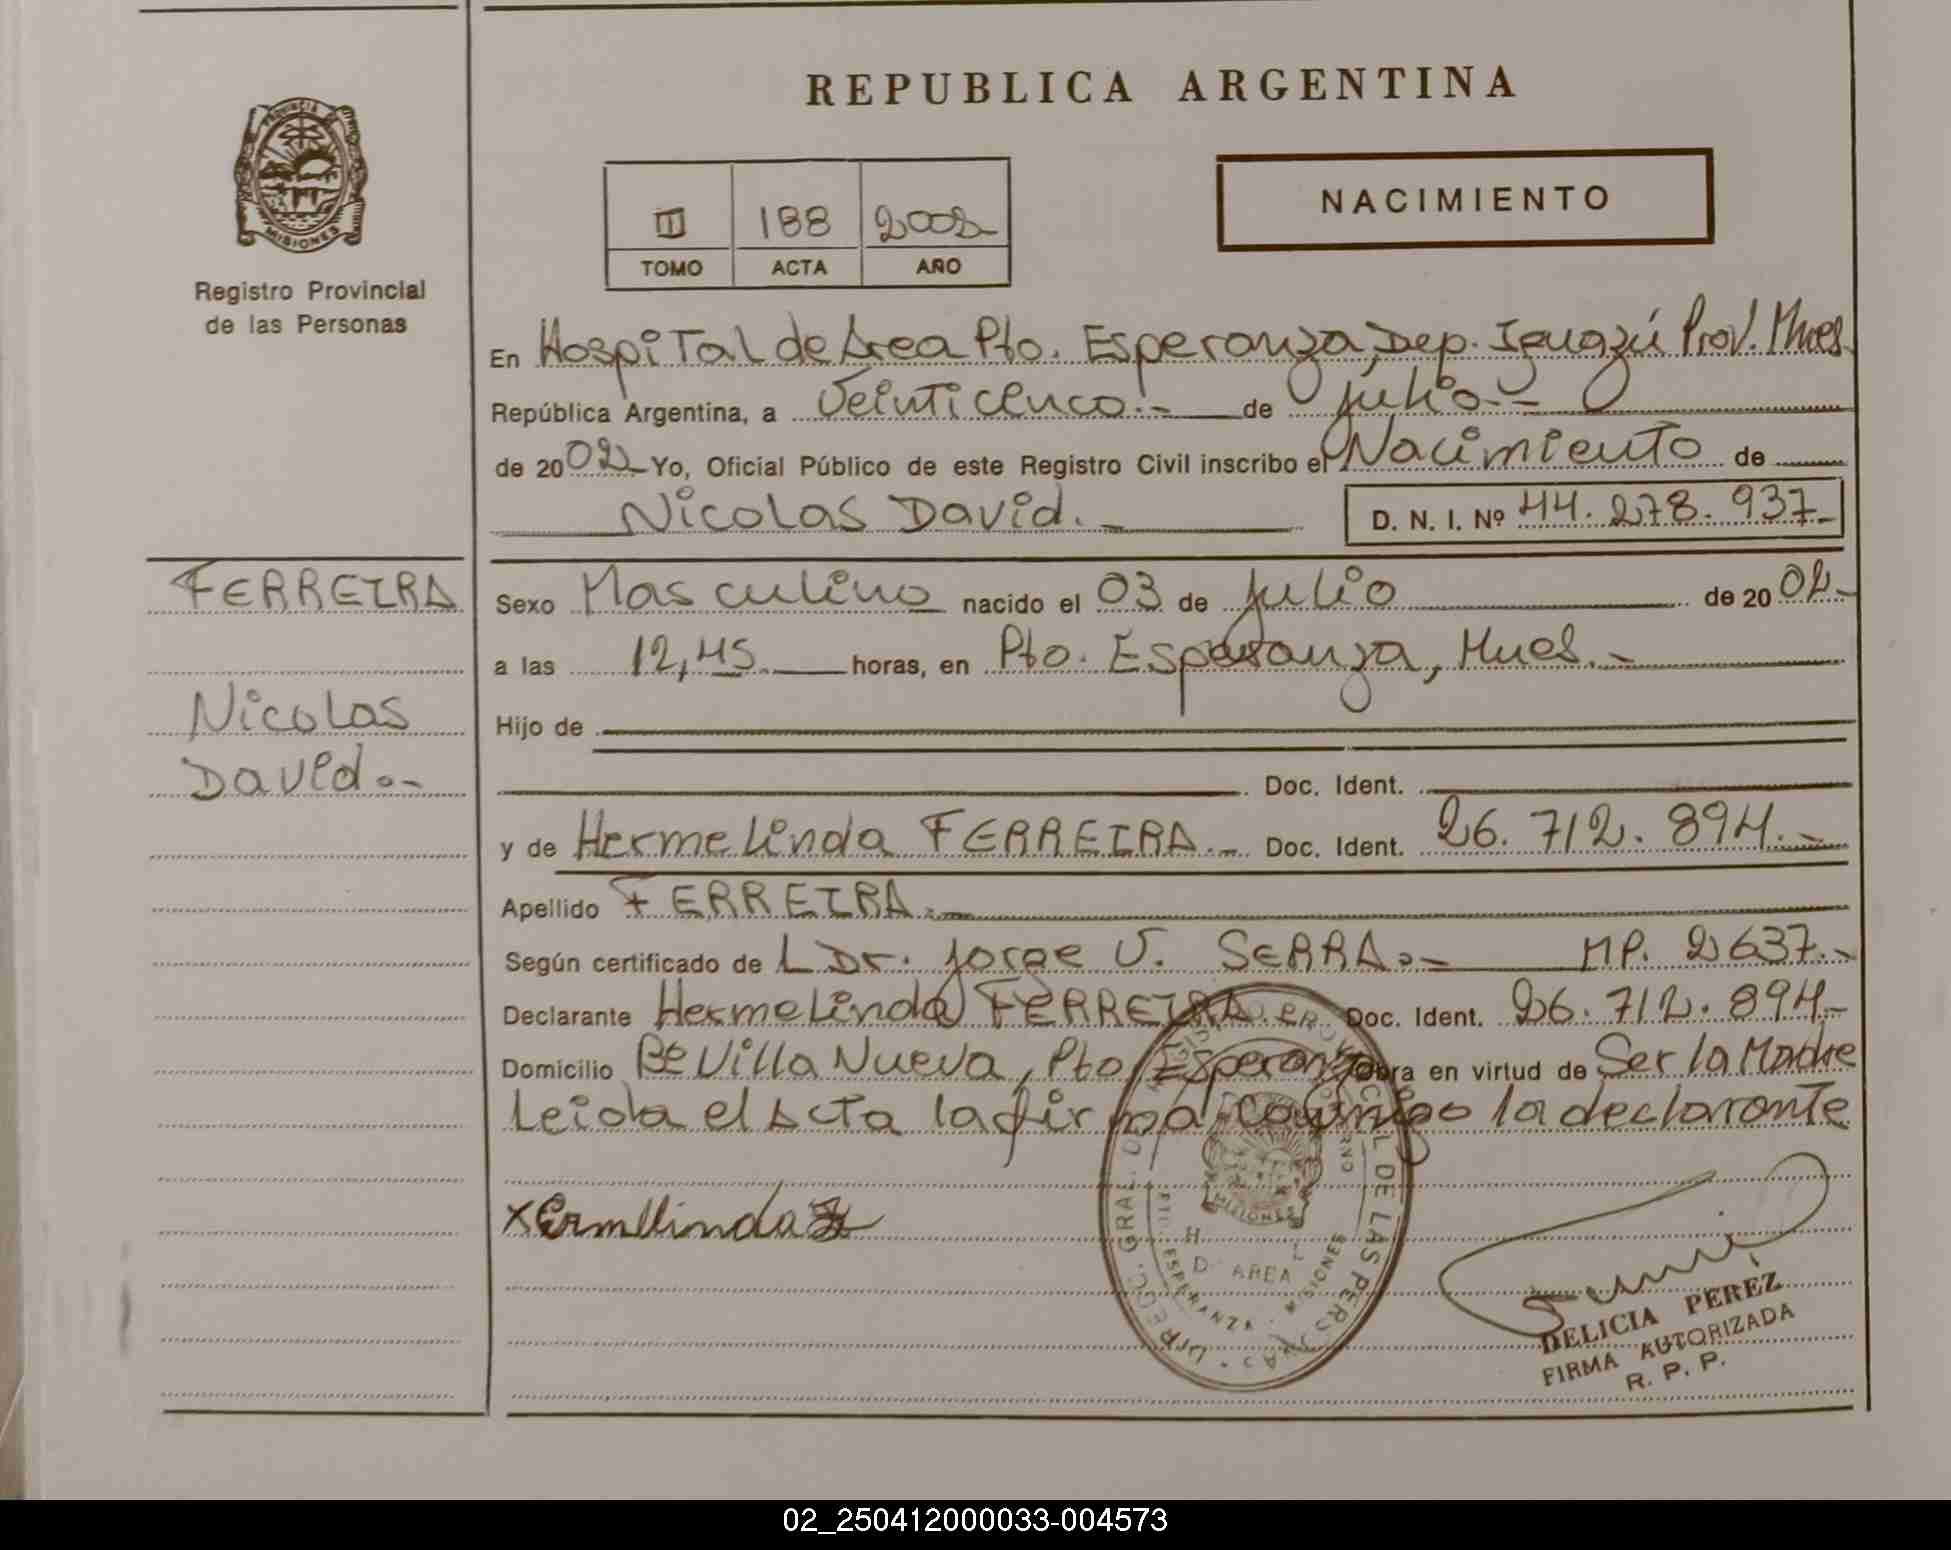 REPUBLICA ARGENTINA
PROVINCIA DE
MISIONES
Registro Provincial
de las Personas
NACIMIENTO
II 188 2002
TOMO ACTA AÑO
En Hospital de Area Pto. Esperanza, Dep. Iguazú Prov. Mnes.
República Argentina, a Veinticinco.- de Julio.-
de 2002 Yo, Oficial Público de este Registro Civil inscribo el Nacimiento de
Nicolas David.- D. N. I. Nº 44.278.937-
FERREIRA
Nicolas
David.-
Sexo Masculino nacido el 03 de Julio de 2002-
a las 12,45 horas, en Pto. Esperanza, Mnes.-
Hijo de
Doc. Ident.
y de Hermelinda FERREIRA.- Doc. Ident. 26.712.894.-
Apellido FERREIRA.-
Según certificado de L Dr. Jorge V. SERRA.- MP. 2637.-
Declarante Hermelinda FERREIRA Doc. Ident. 26.712.894-
Domicilio Bº Villa Nueva, Pto Esperanza Obra en virtud de Ser la Madre
Leida el Acta la firma conmigo la declarante
x Ermllinda
DIREC. GRAL. DEL REGISTRO PROVINCIAL DE LAS PERSONAS
MISIONES
D AREA
ESPERANZA - MISIONES
DELICIA PEREZ
FIRMA AUTORIZADA
R. P. P.
02_250412000033-004573